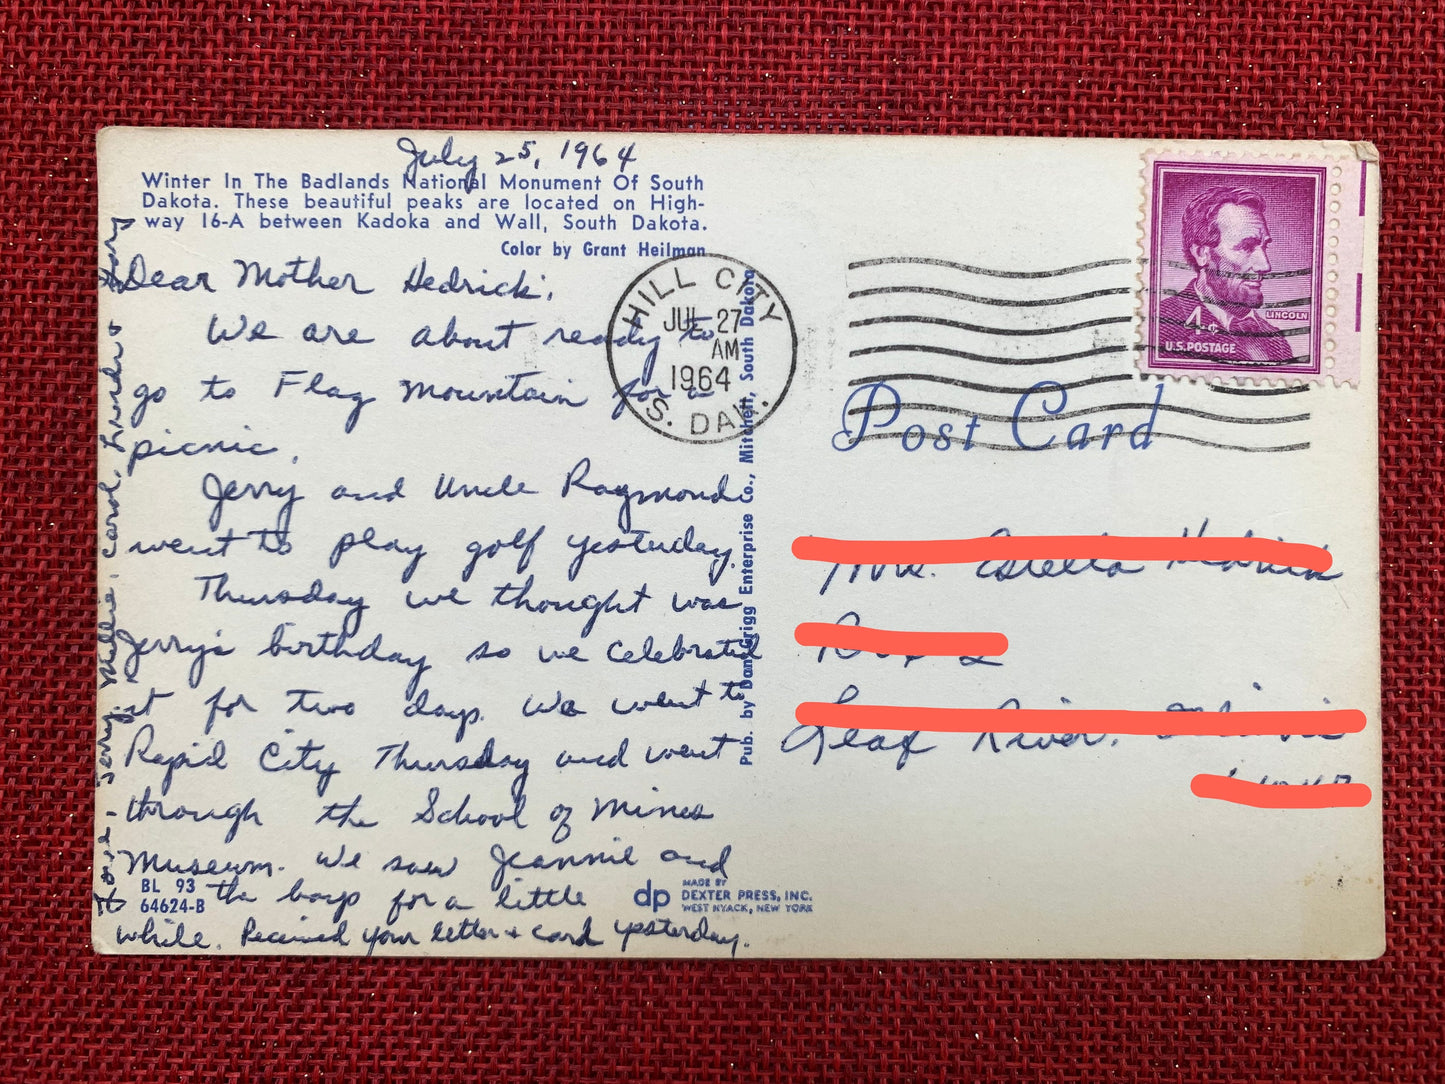 July 25, 1964
Winter In The Badlands National Monument Of South
Dakota. These beautiful peaks are located on High-
way 16-A between Kadoka and Wall, South Dakota.
Color by Grant Heilman
Dear Mother Hedrick,
We are about ready to
go to Flag Mountain for a
picnic.
Jerry and Uncle Raymond
went to play golf yesterday.
Thursday we thought was
Jerry's birthday so we celebrated
it for two days. We went to
Rapid City Thursday and went
through the School of Mines
Museum. We saw Jeannie and
the boys for a little
while. Received your letter + card yesterday.
Love, Jerry, Millie, Carol, &
BL 93
64624-B
dp
MADE BY
DEXTER PRESS, INC.
WEST NYACK, NEW YORK
Pub. by Dan Grigg Enterprise Co., Mitchell, South Dakota
HILL CITY
JUL 27
AM
1964
S. DAK.
Post Card
LINCOLN
4¢
U.S. POSTAGE